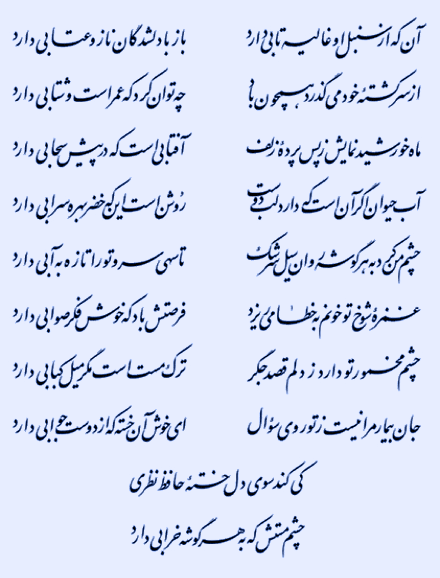 آن که از سنبل او غالیه تابی دارد باز با دلشدگان ناز و عتابی دارد
از سر کشتهٔ خود می‌گذرد همچون باد چه توان کرد که عمر است و شتابی دارد
ماه خورشید نمایش ز پس پردهٔ زلف آفتابی است که در پیش سحابی دارد
آب حیوان اگر آن است که دارد لب دوست روشن است این که خضر بهره سرابی دارد
چشم من کرد به هر گوشه روان سیل سرشک تا سهی سرو تو را تازه به آبی دارد
غمزهٔ شوخ تو خونم به خطا می‌ریزد فرصتش باد که خوش فکر صوابی دارد
چشم مخمور تو دارد ز دلم قصد جگر ترک مست است مگر میل کبابی دارد
جان بیمار مرا نیست ز تو روی سؤال ای خوش آن خسته که از دوست جوابی دارد
کی کند سوی دل خستهٔ حافظ نظری
چشم مستش که به هر گوشه خرابی دارد